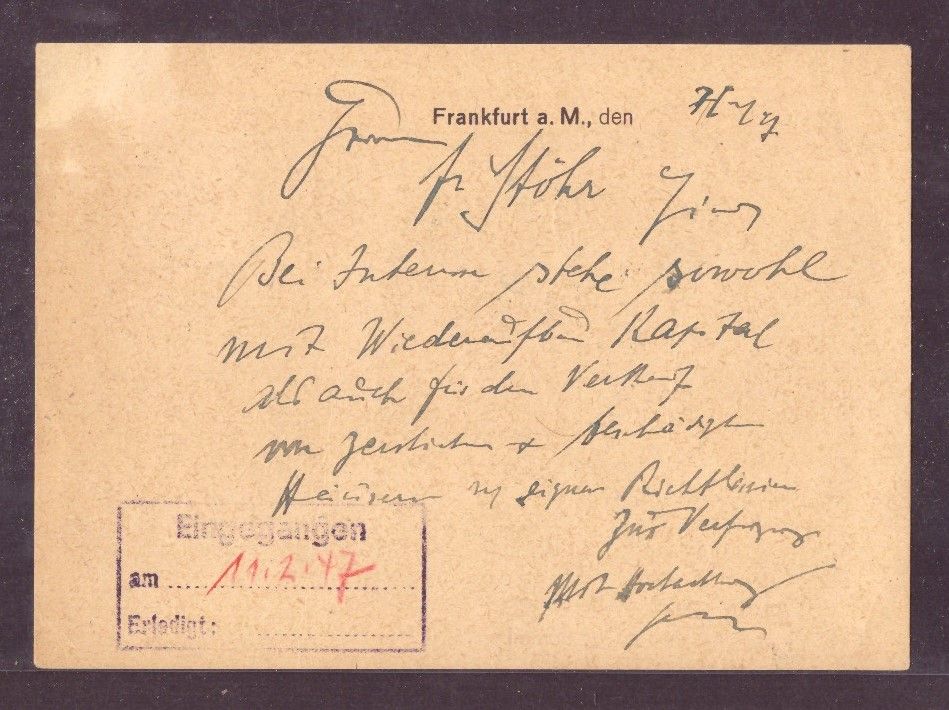 Frankfurt a. M., den
Herrn
Fr Stöhr
Bei Interesse stehe sowohl
mit Wiederaufbau Kapital
als auch für den Verkauf
von zerstörten + beschädigten
Häusern zu eignen Richtlinien
zur Verfügung
Mit Hochachtung
Eingegangen
am 11.2.47
Erledigt: